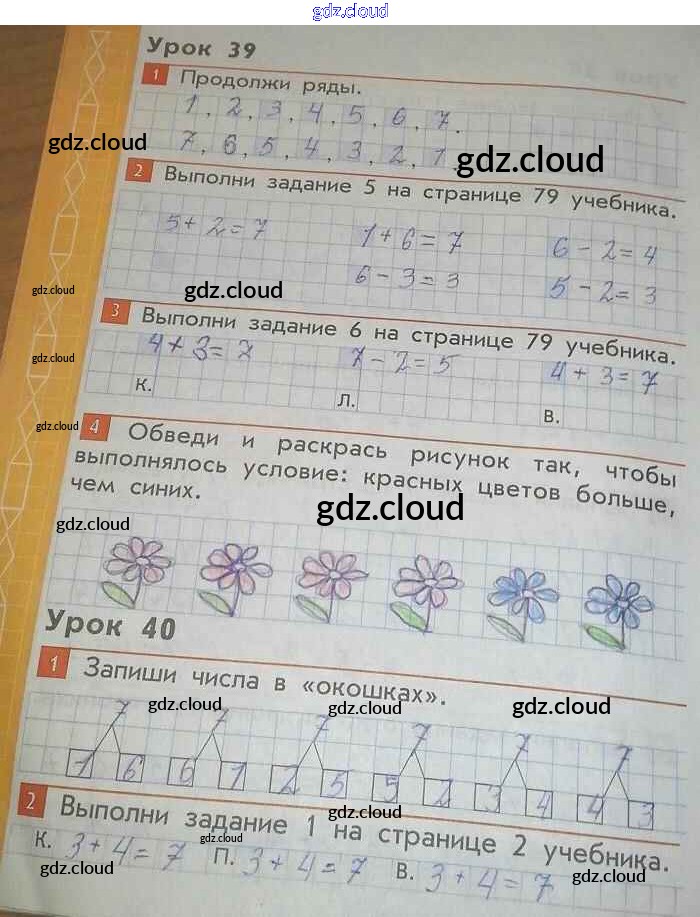 gdz.cloud
Урок 39
1 Продолжи ряды.
1, 2, 3, 4, 5, 6, 7.
7, 6, 5, 4, 3, 2, 1
gdz.cloud gdz.cloud
2 Выполни задание 5 на странице 79 учебника.
5+2=7 1+6=7 6-2=4
6-3=3 5-2=3
gdz.cloud gdz.cloud
3 Выполни задание 6 на странице 79 учебника.
4+3=7 7-2=5 4+3=7
К. Л. В.
gdz.cloud
gdz.cloud
4 Обведи и раскрась рисунок так, чтобы
выполнялось условие: красных цветов больше,
чем синих.
gdz.cloud
gdz.cloud
Урок 40
1 Запиши числа в «окошках».
gdz.cloud gdz.cloud gdz.cloud
7 7 7 7 7 7
1 6 6 1 2 5 5 2 3 4 4 3
gdz.cloud
2 Выполни задание 1 на странице 2 учебника.
gdz.cloud
К. 3+4=7 П. 3+4=7 В. 3+4=7
gdz.cloud gdz.cloud